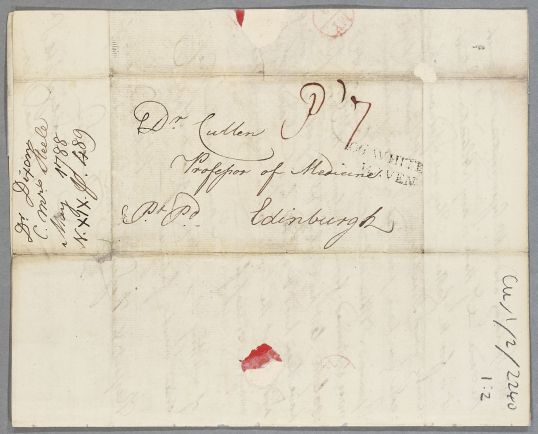 Dr Cullen
Professor of Medicine
Pt Pd Edinburgh
Pd 7
WHITE
HAVEN
Dr Dixon
C. Mrs Steele
May 1788
N. XIX. P. 489
Cul/1/2/2240
1:2